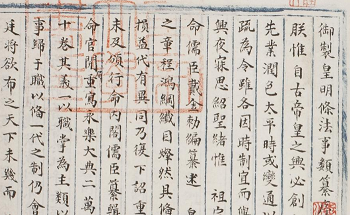 御製皇明條法事類纂
朕惟自古帝皇之興必創
先業潤色大平時或變通以
疏為今雖各因時制宜而與
興夜寐思紹聖緒惟 祖宗
命儒臣戴金勅編纂述 皇
之章程鴻綱纖目燦然具脩
損益代有異同乃復下詔重
未及頒行命內閣儒臣纂輯
命官閱重寫永樂大典二萬
十卷其義以職掌為主類以
事歸于職以脩一代之制仍命
廷將欲布之天下未幾而